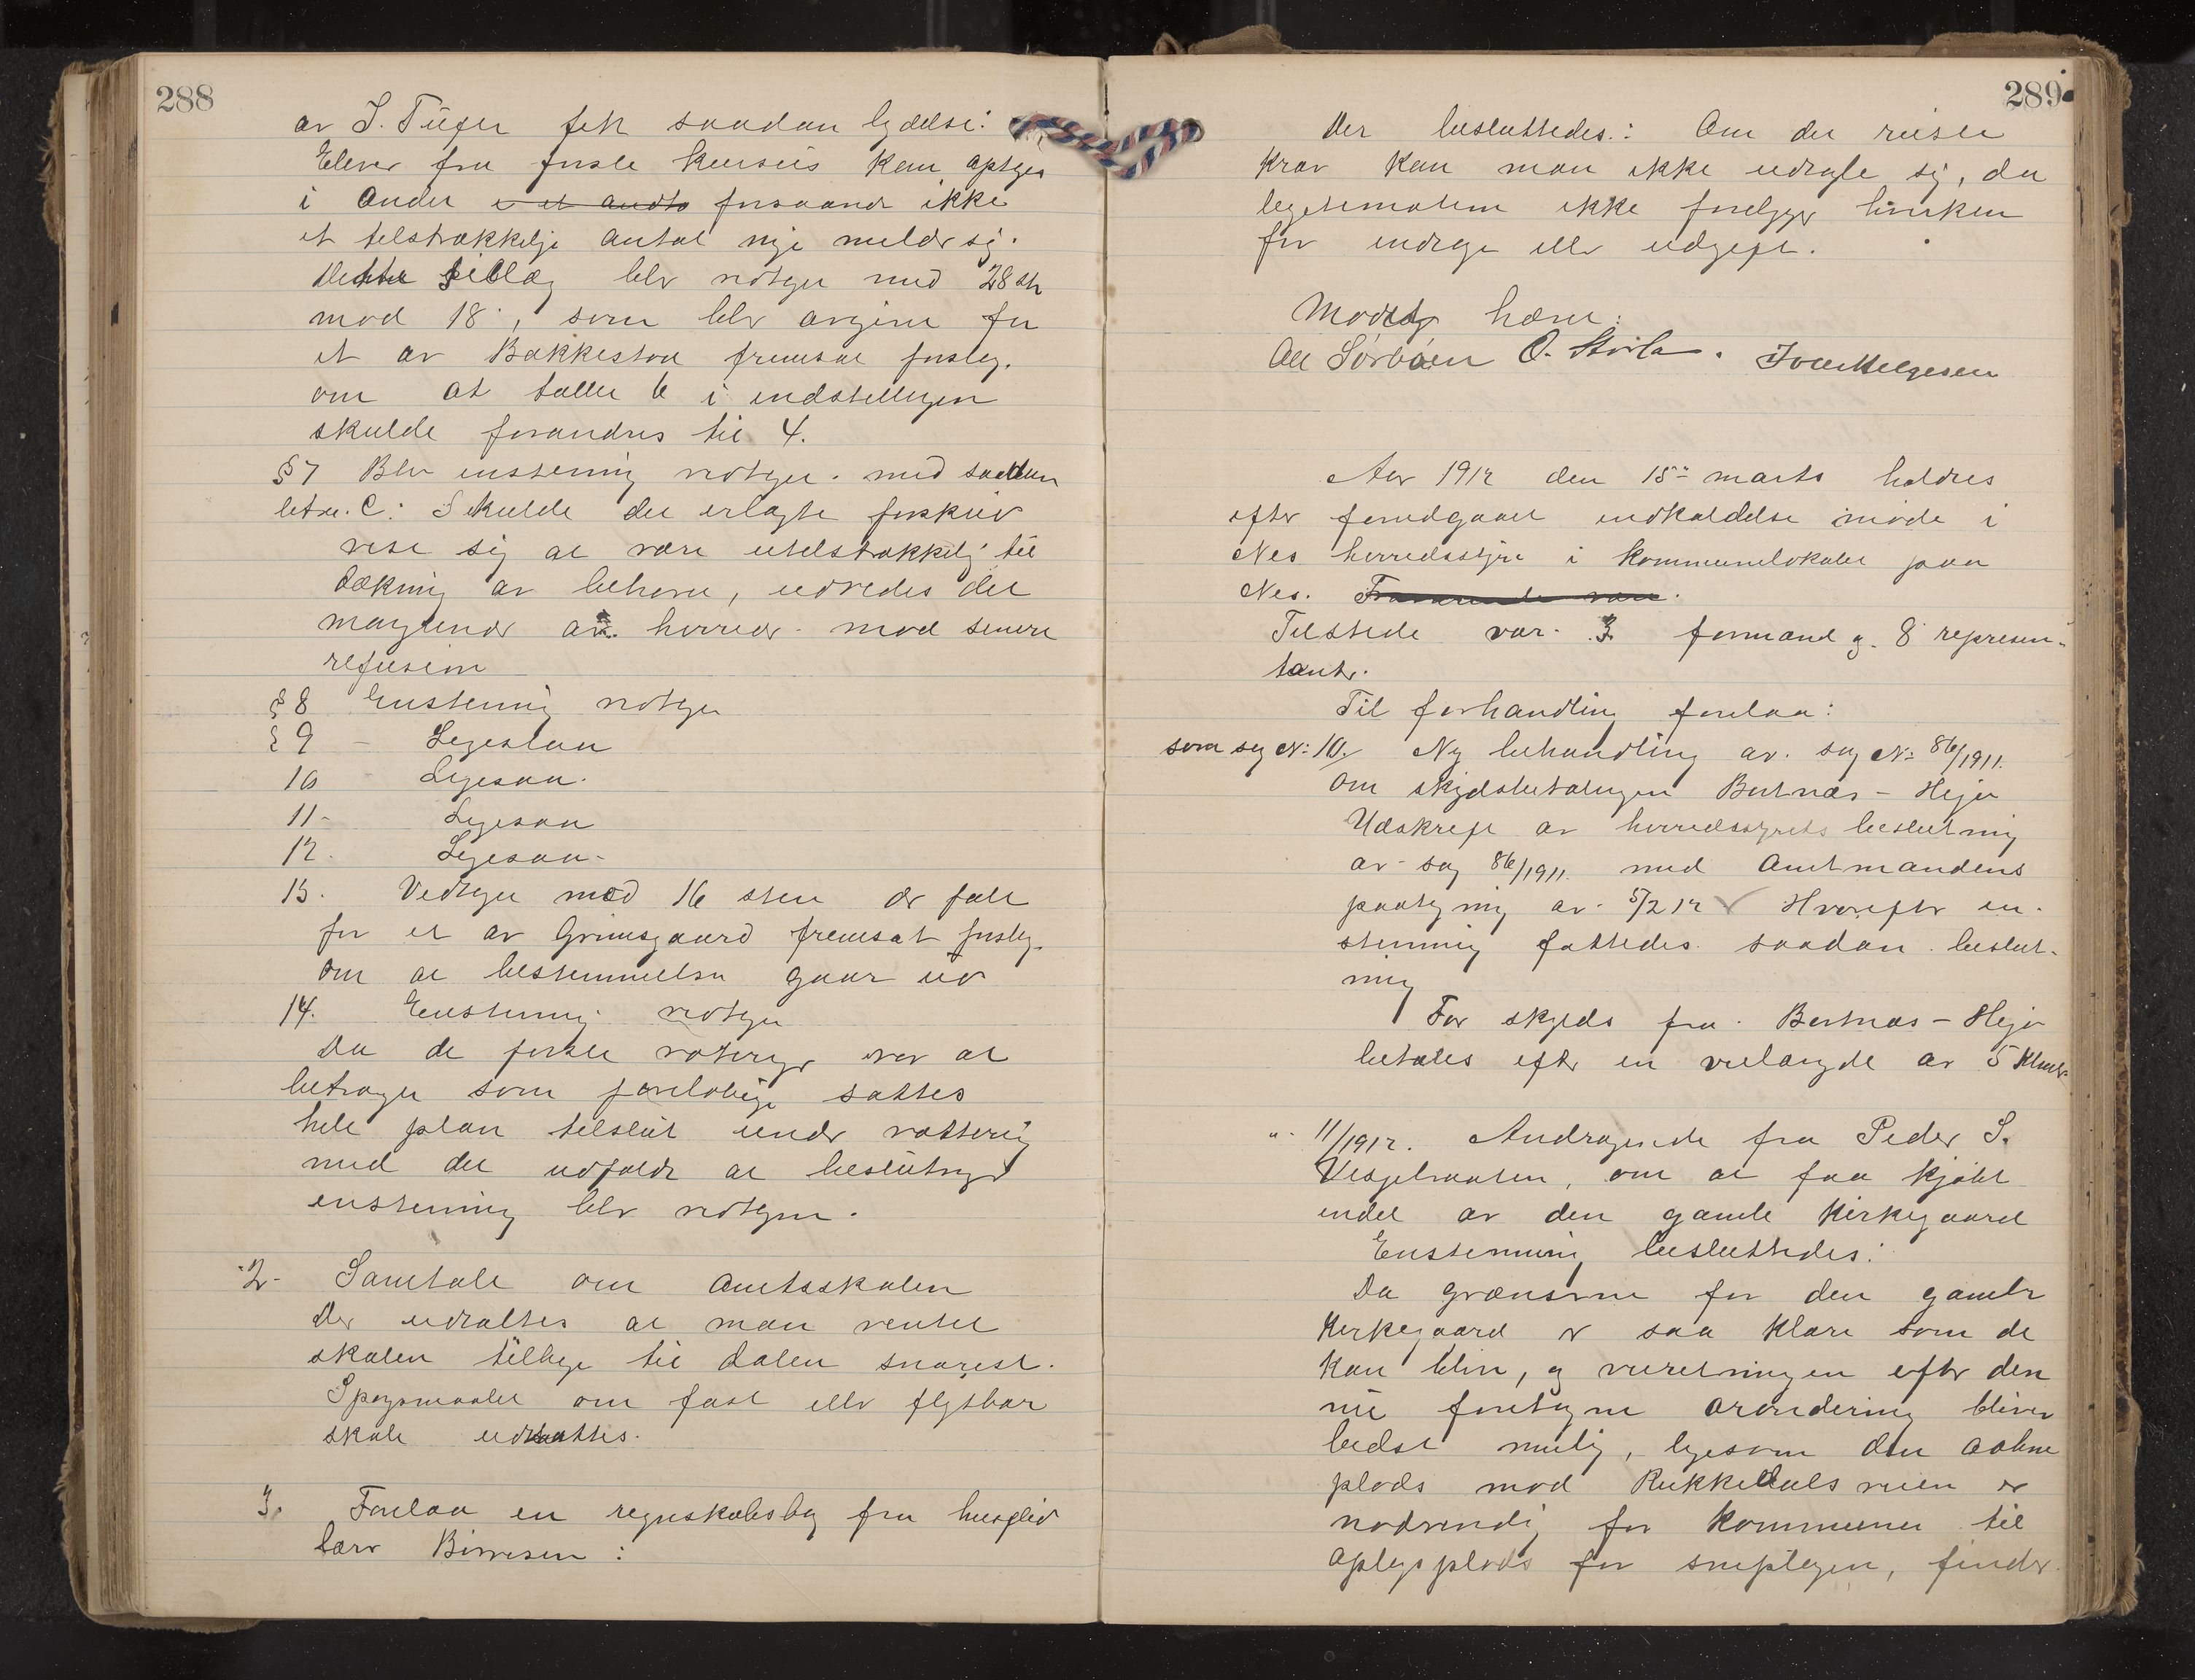 288
av J. Tufer fek saadan lydelse:
Elever fra første kursus kan optges
i andet i et andts forsaavdt ikke
et telstrækkelje antal nye meldr sig.
Dette tillæg blv vdtget med 28 st
mod 18, som blv avgivne for
et av Bakkestoa fremsat forsleg.
om at tallet 6 i indstellingen
skulde forandres til 4.
§ 7 Blev enstemmig vdtget. med saadan
letra. C: Skulde det erlagte forskud
vise sig at være utelstrækkelig til
dækning av behovet, udredes det
manglende av herredr. mod senere
refusion
§ 8 Enstemmig vdtget
§ 9 - Ligesaa
10 Ligesaa.
11- Ligesaa
12. Ligesaa-
13. Vedtget mod 16 stem der falt
for et av Grimsgaard fremsat forsleg.
om at bestemmelsen gaar ud
14. Enstemmig vdtget
Da de første voteringr var at
betragte som foreløbige sattes
hele plan telslut undr vottering
med det udfaldr at beslutnigr
enstemmig blv vdtgen.
2- Samtale om amtsskolen
Der udtaltes at man ventet
skolen tilbage til dalen snarest.
Spørgsmaalet om fast ellr flytbar
skole udsattes.
3. Forelaa en regnskabsbog fra husflid
lærr Birresen:
289
Der besluttedes: Om det reiste
krav kan man ikke udtale sig, da
legetemation ikke foreligger hverken
for indtægt ellr udgift.
Mødet hævet:
Ole Sørbøen O. Storla. Iver Helgesen
Aar 1912 den 15de marts holdtes
efter forudgaaet indkaldelse møde i
Nes herredsstyre i kommunelokalet paa
Nes. Fraværende var.
Tilstede var 3 formænd og 8 represen-
tantr.
Til forhandling forelaa:
som sag No: 10. Ny behandling av sag No 86/1911.
om skydsbetalingen Bortnæs - Hejer
Udskrift av herredsstyrets beslutning
av sag 86/1911 med Amtmandens
paategning av 5/2 12 Hvorefter en-
stemmig fattedes saadan beslut-
ning
For skyds fra Bortnæs - Hejer
betales eftr en veilængde av 5 klmtr.
"- 11/1912. Andragende fra Peder S.
Vespelraaten, om at faa kjøbt
endel av den gamle kirkegaard
Enstemmig besluttedes:
Da grænserne for den gamle
kirkegaard er saa klare som de
kan bliv, og veiretningen eftr den
nu foretagne arondering bliver
bedst mulig, ligesom den aabne
plads mod Rukkedalsveien er
nødvendig for kommunen til
oplagsplads for sneplogen, findr